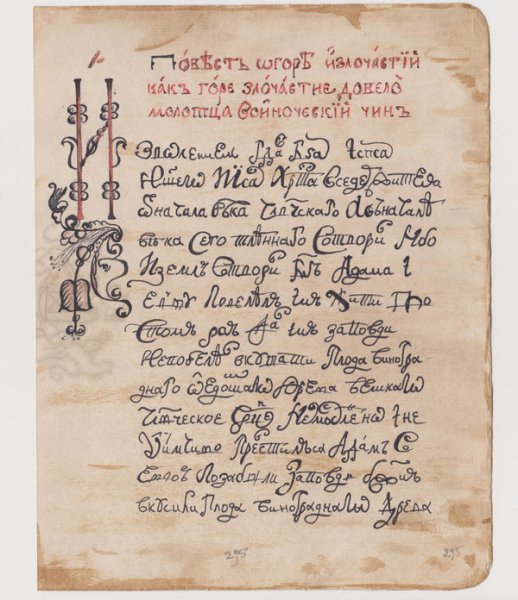 Повѣсть ѡ горѣ излочастїй
какъ горе злочастие довело
молотца воиночевскїй чинъ
Изволениемъ гда бга іспса
нашего Ииса Хрта вседержителя
ѿначала вѣка члвческаго Авъначалѣ
вѣка сего тлѣннаго сотвори нбо
изємлю сотвори бгъ Адама і
Евву повелѣлъ имъ жити во
стомъ раю да имъ заповди
неповелѣ вкушати плода виногра
днаго древа великаго
члвческое срце не
уимчиво прелстилъся Адамъ с
Еввою позабыли заповдь бжию
вкусили плода винограднаго древа
295 295